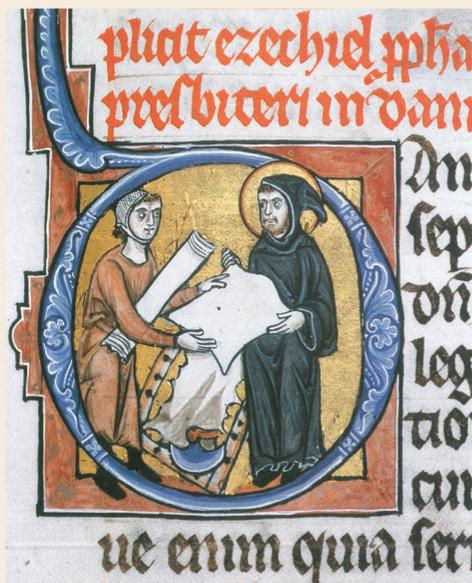 plicit ezechiel ppha
presbiteri in dani
An
sep
dn̄
leg
tio
cun
ue enim quia ser